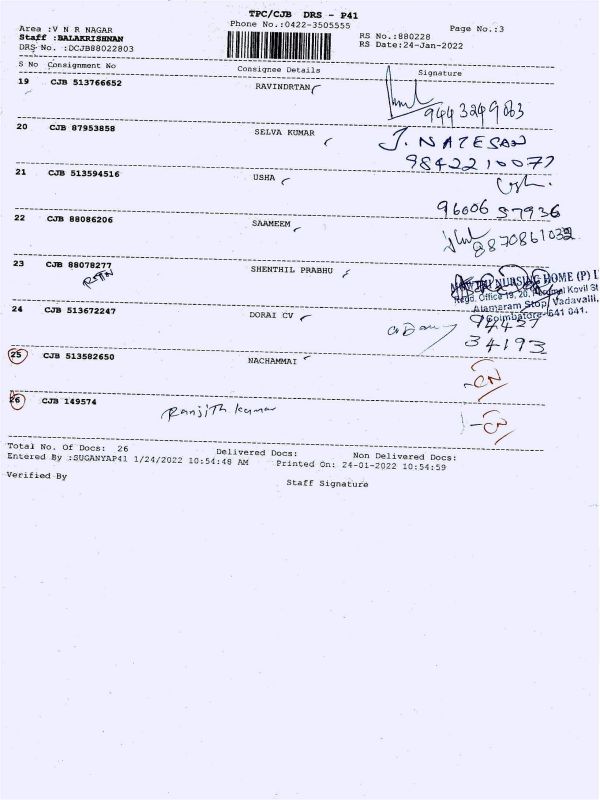 TPC/CJB DRS - P41
Phone No.:0422-3505555
Page No.:3
Area :V N R NAGAR
Staff :BALAKRISHNAN
DRS No. :DCJB88022803
RS No.:880228
RS Date:24-Jan-2022
S No Consignment No Consignee Details Signature
19 CJB 513766652 RAVINDRTAN
9443249063
20 CJB 87953858 SELVA KUMAR J. NATESAN
9842210077
21 CJB 513594516 USHA
96006 57936
22 CJB 88086206 SAAMEEM
8870861032
23 CJB 88078277 SHENTHIL PRABHU
NURSING HOME (P) L
Regd. Office 19, 20, Kovil St
Alamaram Stop, Vadavalli,
Coimbatore-641 041.
24 CJB 513672247 DORAI CV
94437
34193
25 CJB 513582650 NACHAMMAI
-CN
26 CJB 149574 Ranjith kumar
-CN
Total No. Of Docs: 26 Delivered Docs: Non Delivered Docs:
Entered By :SUGANYAP41 1/24/2022 10:54:48 AM Printed On: 24-01-2022 10:54:59
Verified By Staff Signature